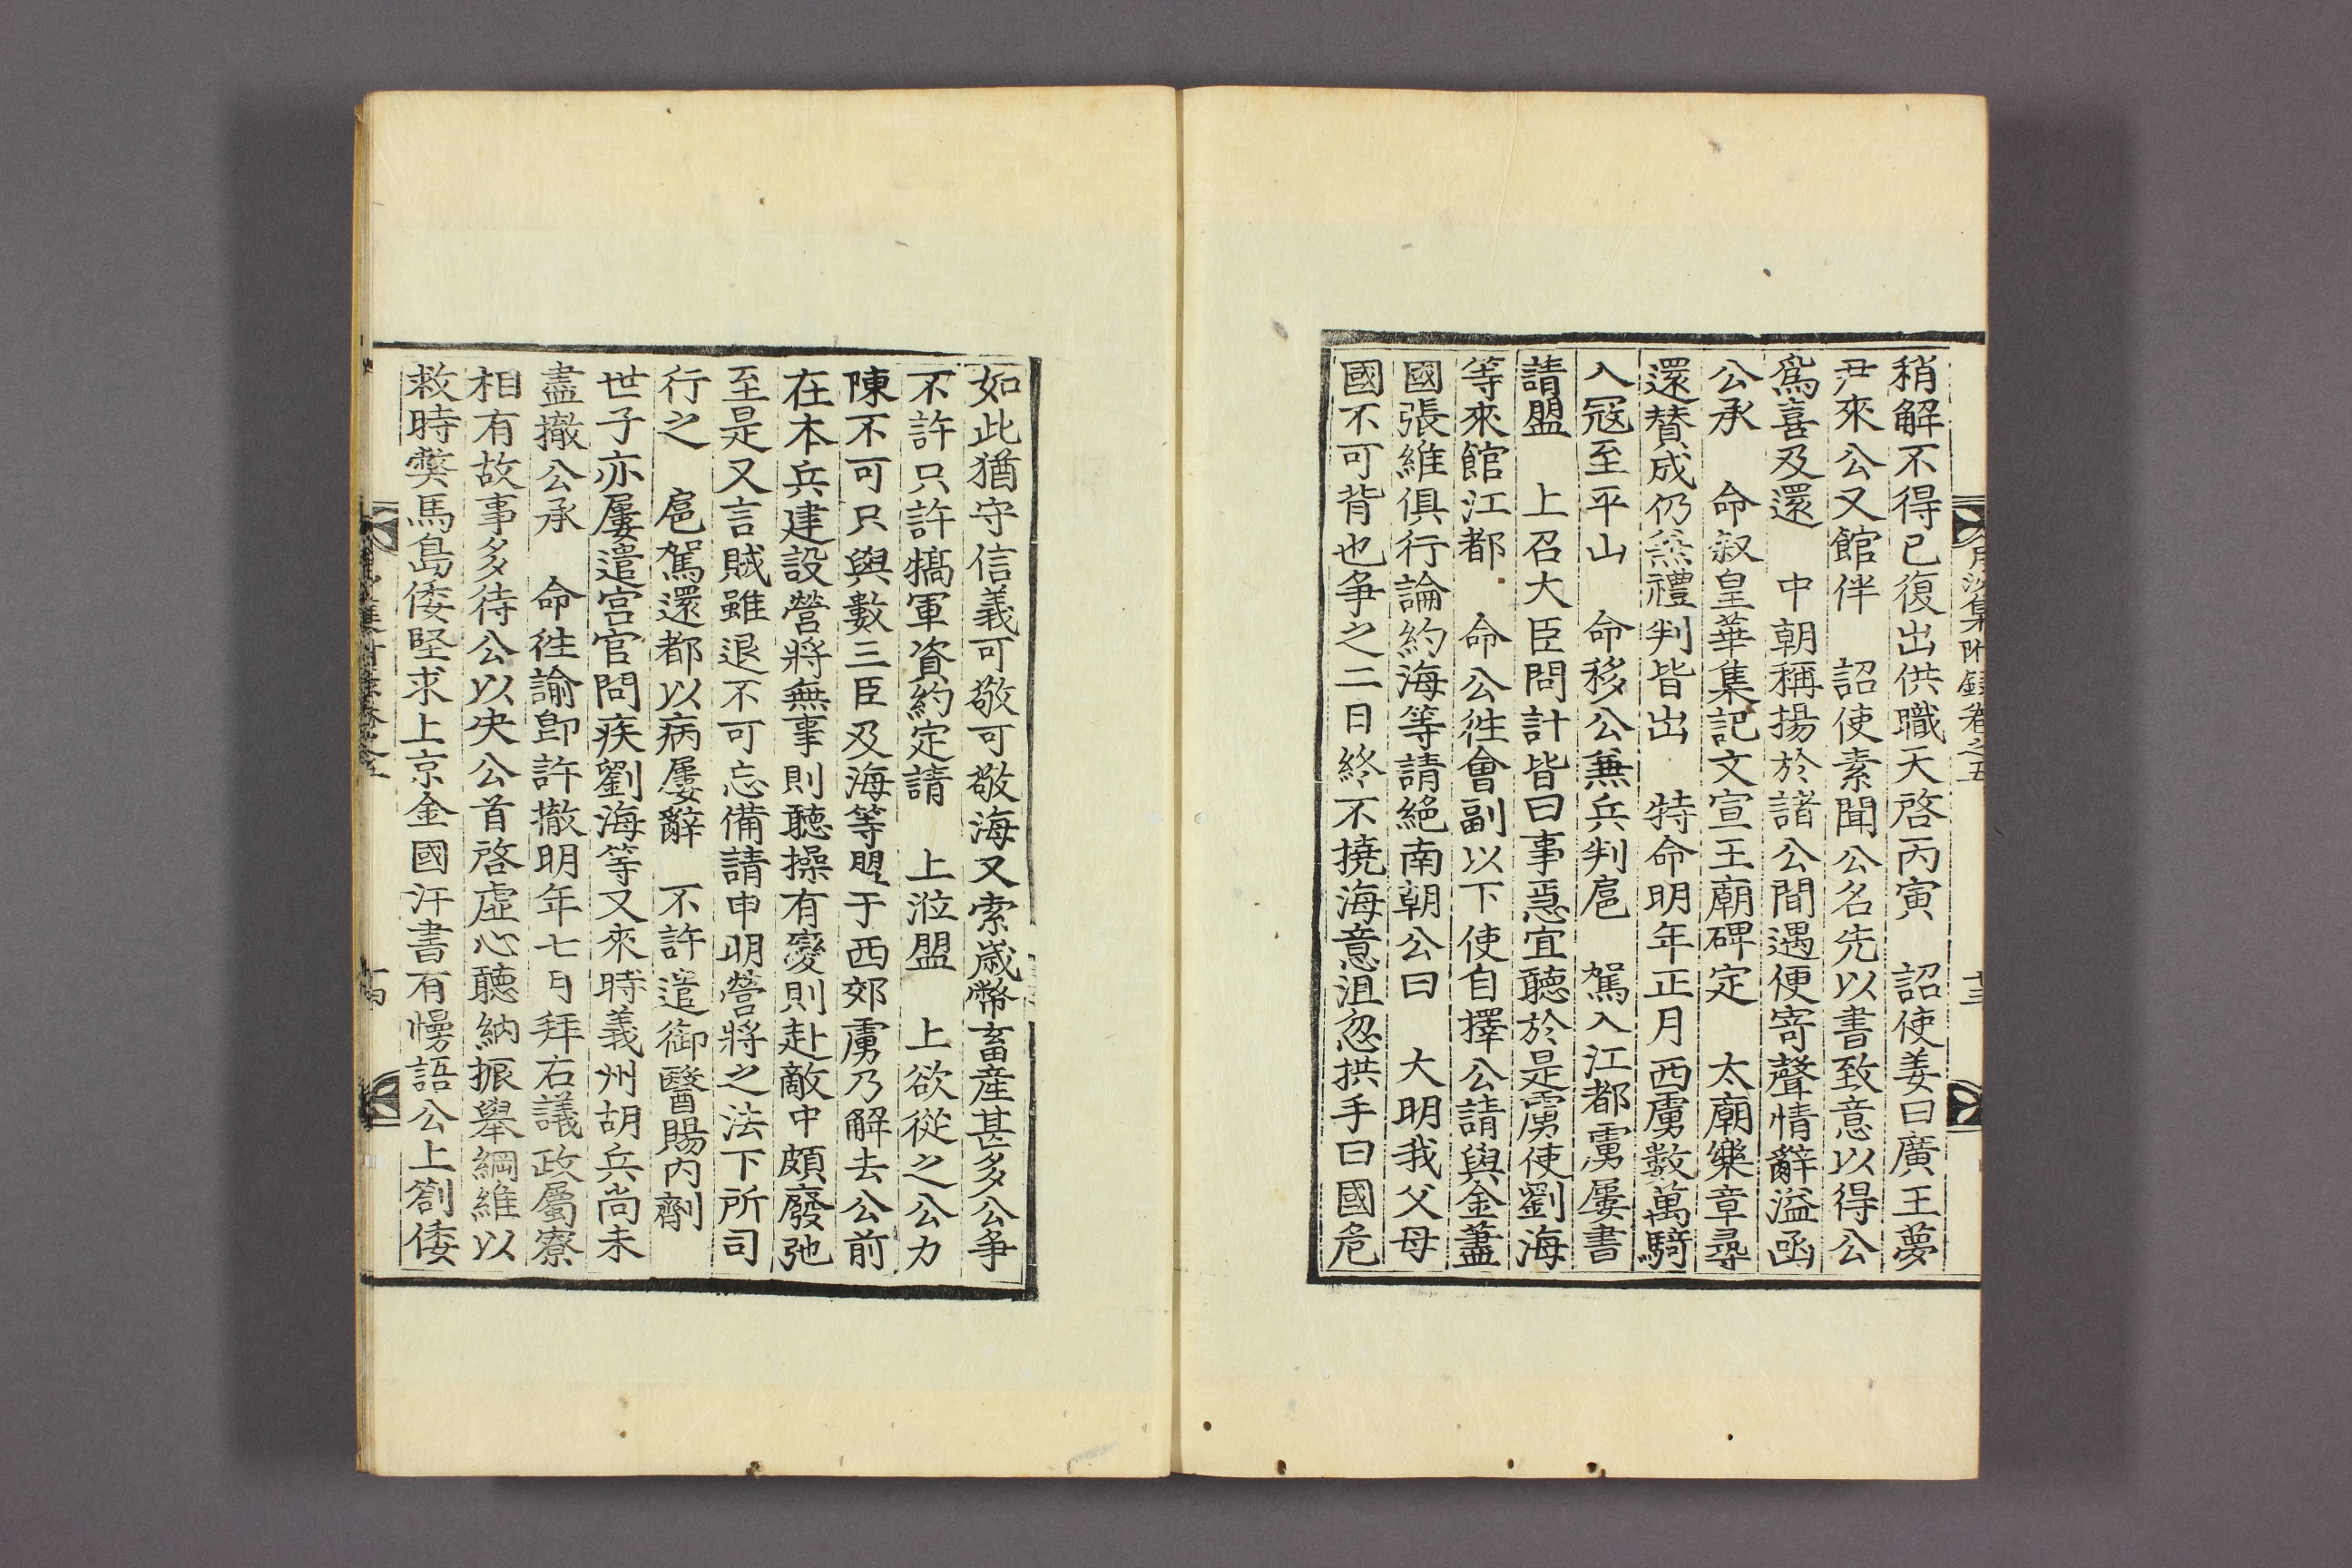 月沙集附錄卷之五 十三
稍解不得已復出供職天啓丙寅 詔使姜曰廣王夢
尹來公又館伴 詔使素聞公名先以書致意以得公
爲喜及還 中朝稱揚於諸公間遇便寄聲情辭溢函
公承 命叙皇華集記文宣王廟碑定 太廟樂章尋
還贊成仍兼禮判皆出 特命明年正月西虜數萬騎
入寇至平山 命移公兼兵判扈 駕入江都虜屢書
請盟 上召大臣問計皆曰事急宜聽於是虜使劉海
等來館江都 命公徃會副以下使自擇公請與金藎
國張維俱行論約海等請絕南朝公曰 大明我父母
國不可背也爭之二日終不撓海意沮忽拱手曰國危
如此猶守信義可敬可敬海又索歲幣畜産甚多公爭
不許只許犒軍資約定請 上涖盟 上欲從之公力
陳不可只與數三臣及海等盟于西郊虜乃解去公前
在本兵建設營將無事則聽操有變則赴敵中頗廢弛
至是又言賊雖退不可忘備請申明營將之法下所司
行之 扈駕還都以病屢辭 不許遣御醫賜內劑
世子亦屢遣宮官問疾劉海等又來時義州胡兵尙未
盡撤公承 命徃諭卽許撤明年七月拜右議政屬寮
相有故事多待公以决公首啓虛心聽納振擧綱維以
救時弊馬島倭堅求上京金國汗書有慢語公上箚倭